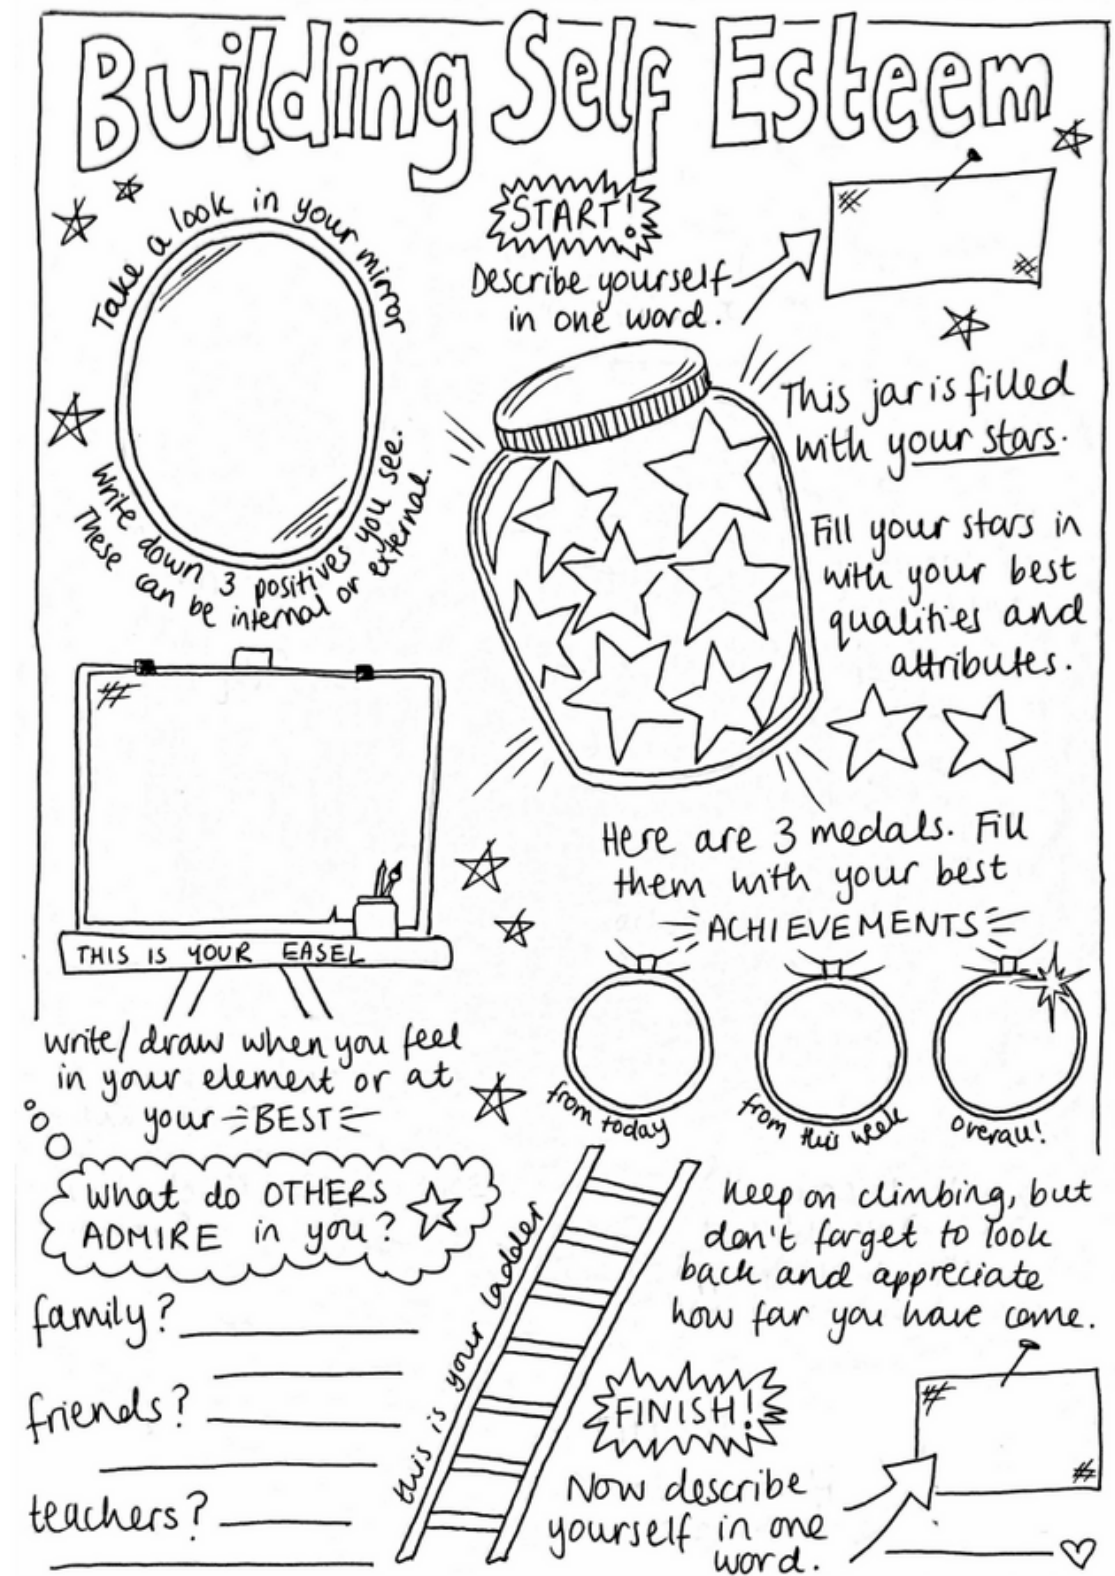 Building Self Esteem
Take a look in your mirror
Write down 3 positives you see.
These can be internal or external.
START!
Describe yourself
in one word.
This jar is filled
with your stars.
Fill your stars in
with your best
qualities and
attributes.
THIS IS YOUR EASEL
write/draw when you feel
in your element or at
your BEST
Here are 3 medals. Fill
them with your best
ACHIEVEMENTS
from today
from this week
overall!
What do OTHERS
ADMIRE in you?
family?
friends?
teachers?
this is your ladder
Keep on climbing, but
don't forget to look
back and appreciate
how far you have come.
FINISH!
Now describe
yourself in one
word.